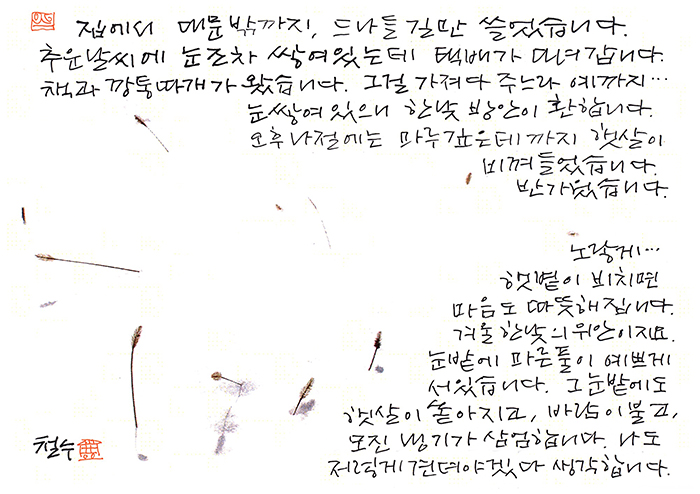 집에서 대문밖까지, 드나들 길만 쓸었습니다.
추운날씨에 눈조차 쌓여있는데 택배가 다녀갑니다.
책과 깡통따개가 왔습니다. 그걸 가져다 주느라 예까지…
눈쌓여 있으니 한낮 방안이 환합니다.
오후 나절에는 마루 깊은데 까지 햇살이
비껴들었습니다.
반가웠습니다.
노랗게…
햇볕이 비치면
마음도 따뜻해집니다.
겨울 한낮의 위안이지요.
눈밭에 마른풀이 예쁘게
서있습니다. 그 눈밭에도
햇살이 쏟아지고, 바람이 불고,
모진 냉기가 삼엄합니다. 나도
저렇게 견뎌야겠다 생각합니다.
철수